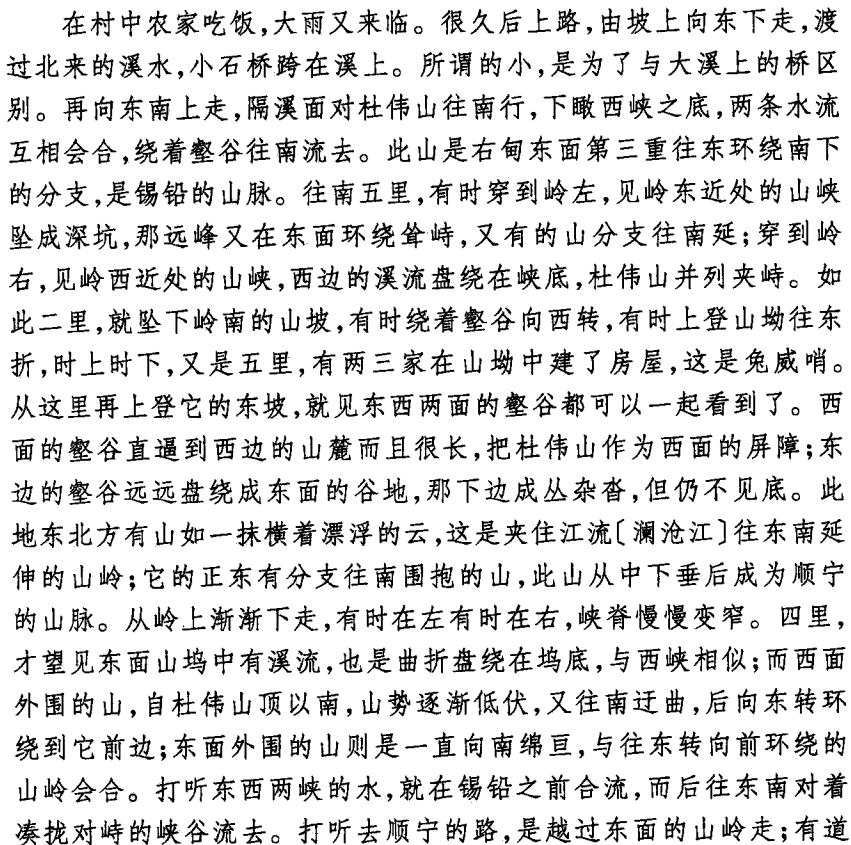 在村中农家吃饭,大雨又来临。很久后上路,由坡上向东下走,渡
过北来的溪水,小石桥跨在溪上。所谓的小,是为了与大溪上的桥区
别。再向东南上走,隔溪面对杜伟山往南行,下瞰西峡之底,两条水流
互相会合,绕着壑谷往南流去。此山是右甸东面第三重往东环绕南下
的分支,是锡铅的山脉。往南五里,有时穿到岭左,见岭东近处的山峡
坠成深坑,那远峰又在东面环绕耸峙,又有的山分支往南延;穿到岭
右,见岭西近处的山峡,西边的溪流盘绕在峡底,杜伟山并列夹峙。如
此二里,就坠下岭南的山坡,有时绕着壑谷向西转,有时上登山坳往东
折,时上时下,又是五里,有两三家在山坳中建了房屋,这是兔威哨。
从这里再上登它的东坡,就见东西两面的壑谷都可以一起看到了。西
面的壑谷直逼到西边的山麓而且很长,把杜伟山作为西面的屏障;东
边的壑谷远远盘绕成东面的谷地,那下边成丛杂沓,但仍不见底。此
地东北方有山如一抹横着漂浮的云,这是夹住江流〔澜沧江〕往东南延
伸的山岭;它的正东有分支往南围抱的山,此山从中下垂后成为顺宁
的山脉。从岭上渐渐下走,有时在左有时在右,峡脊慢慢变窄。四里,
才望见东面山坞中有溪流,也是曲折盘绕在坞底,与西峡相似;而西面
外围的山,自杜伟山顶以南,山势逐渐低伏,又往南迂曲,后向东转环
绕到它前边;东面外围的山则是一直向南绵亘,与往东转向前环绕的
山岭会合。打听东西两峡的水,就在锡铅之前合流,而后往东南对着
凑拢对峙的峡谷流去。打听去顺宁的路,是越过东面的山岭走;有道